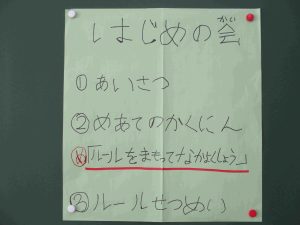 はじめの会
かい
①あいさつ
②めあてのかくにん
め「ルールをまもってなかよくしよう」
③ルールせつめい